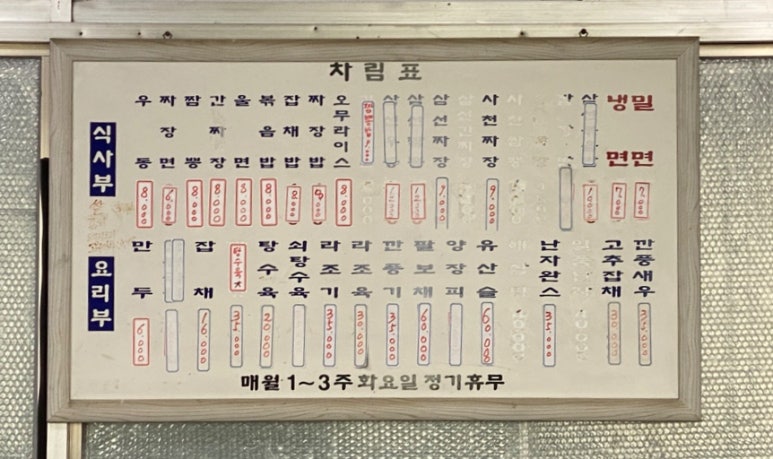 차림표
식사부
우동 8.000
짜장면 6.000
짬뽕 8.000
간짜장 8.000
울면 8.000
볶음밥 8.000
잡채밥
짜장밥
오무라이스 8.000
삼선짜장 9.000
사천짜장 9.000
냉면 7.000
밀면 7.000
요리부
만두 6.000
잡채 16.000
탕수육大 35.000
탕수육 20.000
쇠탕수육
라조기 35.000
라조육 30.000
깐풍기 35.000
팔보채 60.000
양장피
유산슬 60.000
난자완스 35.000
고추잡채 30.000
깐풍새우 35.000
매월 1~3주 화요일 정기휴무